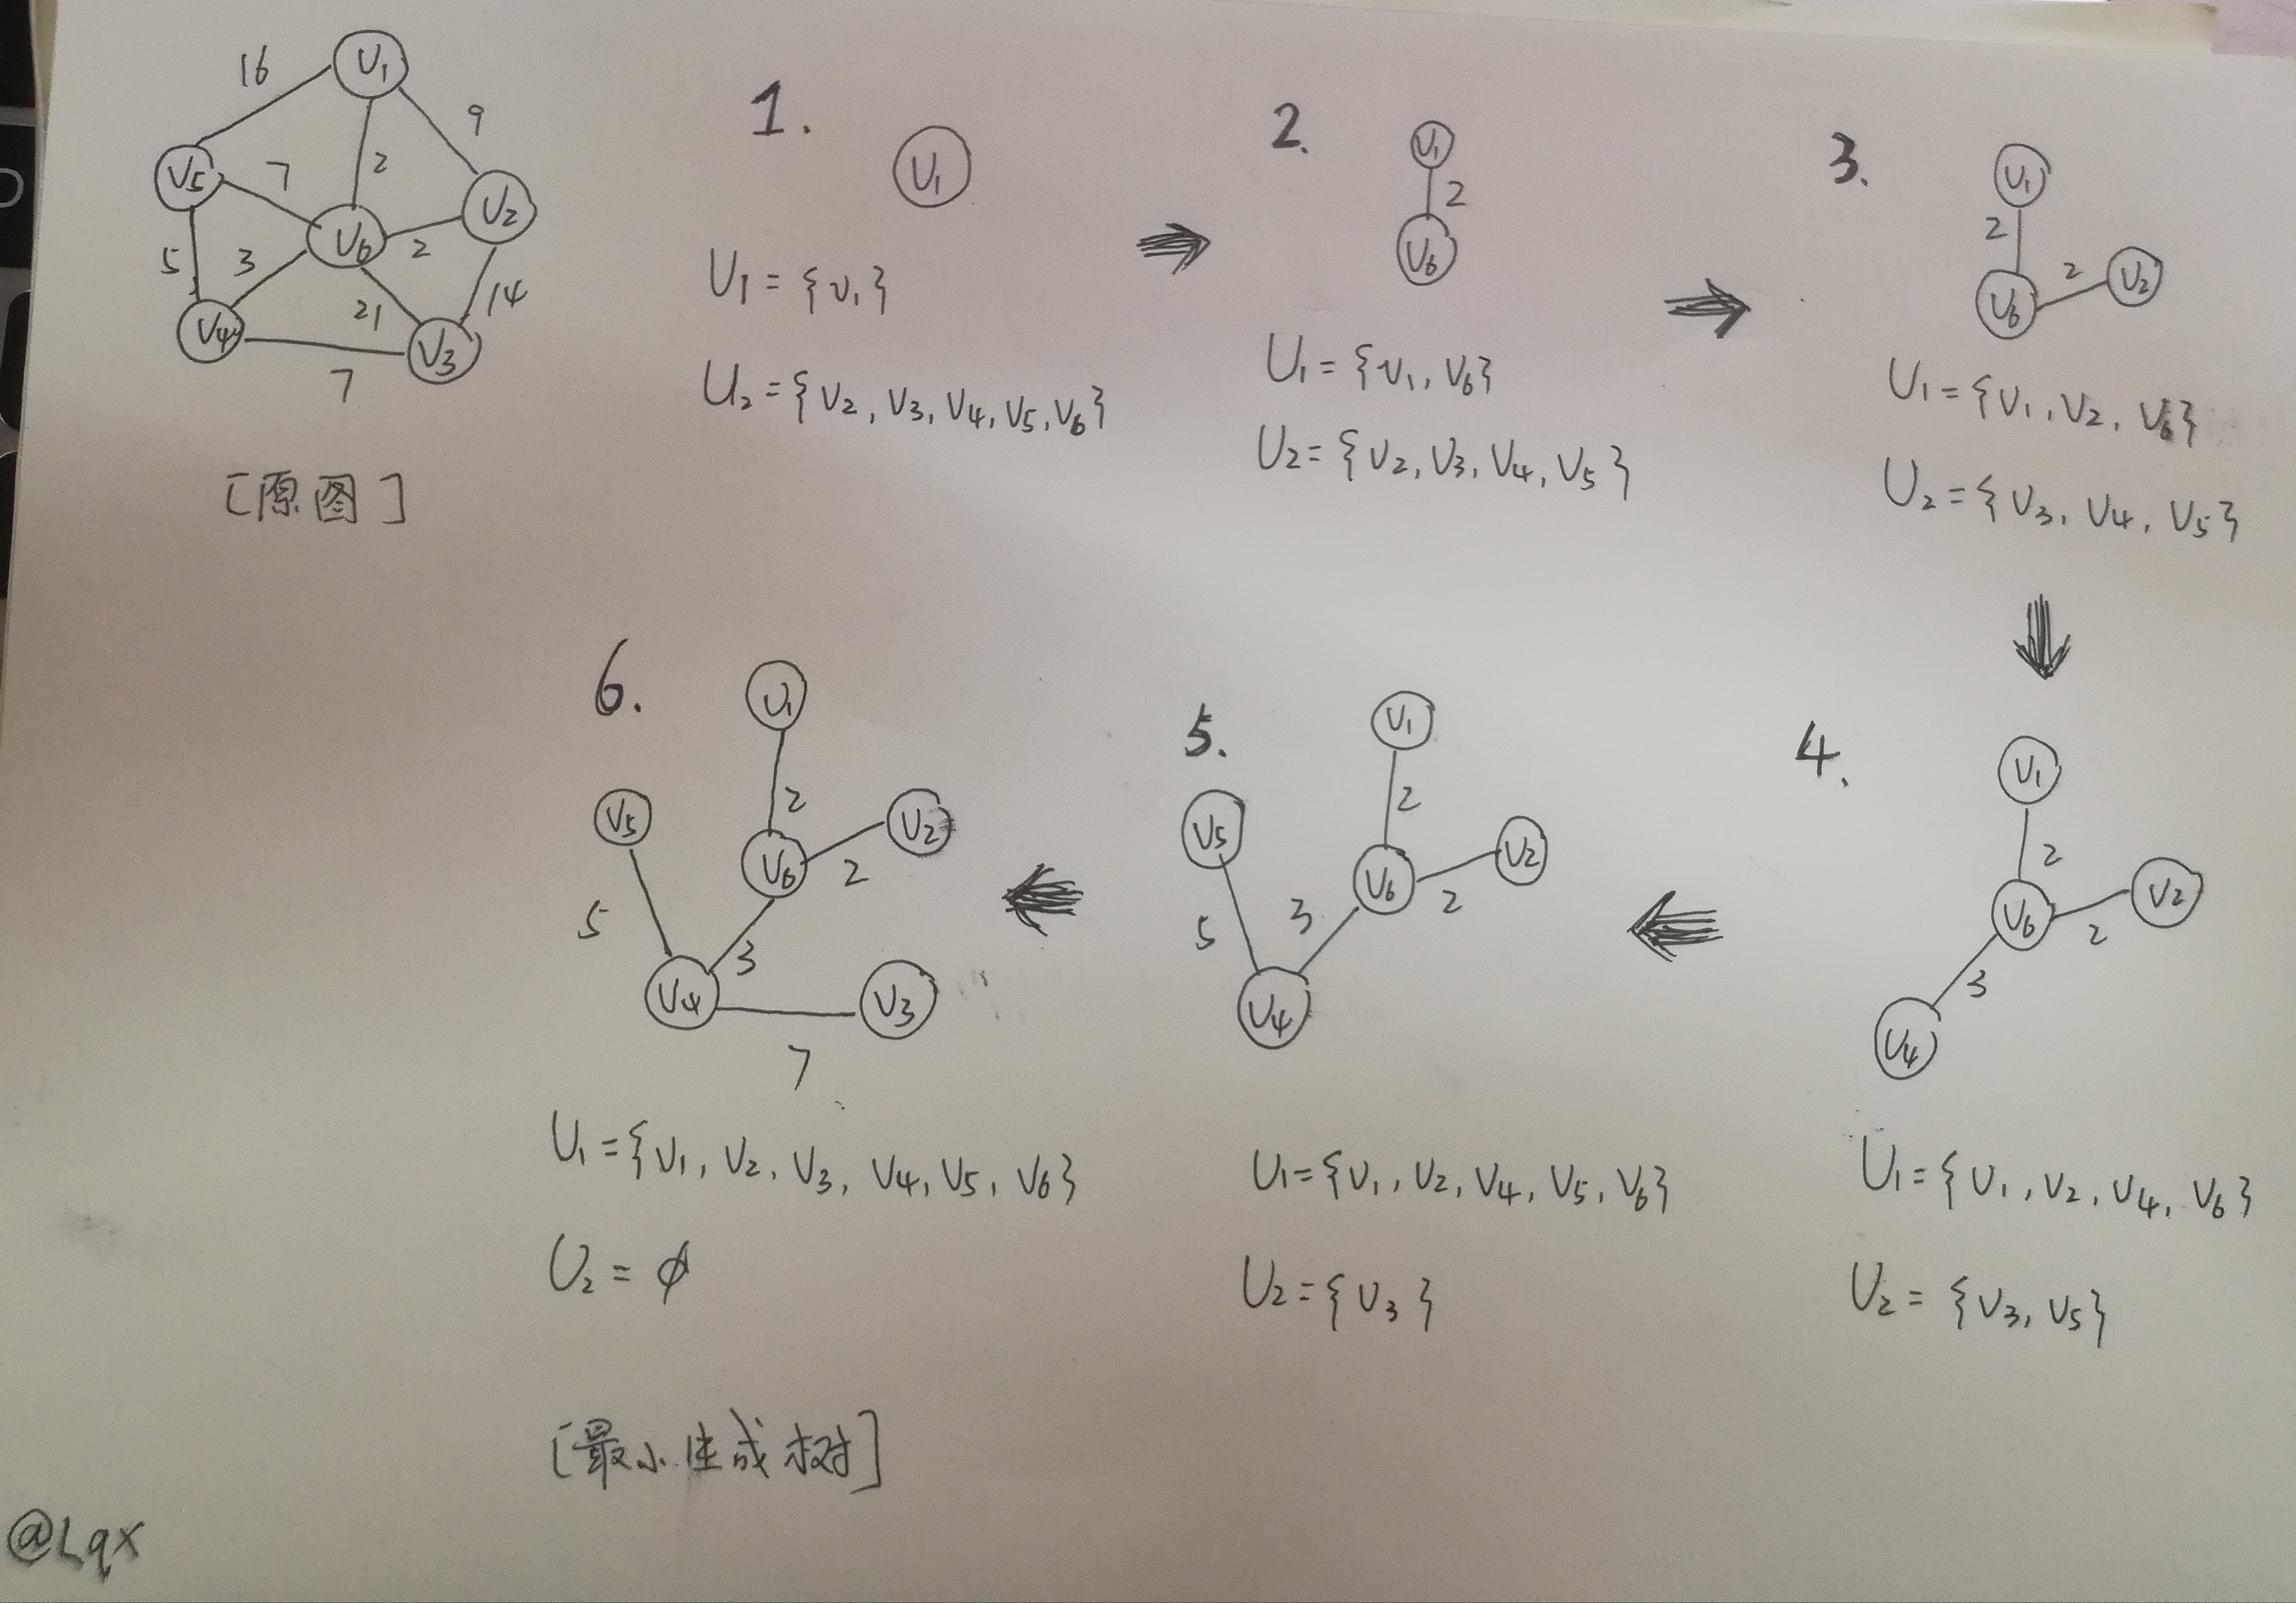 16
V₁
9
V₅
7
2
V₂
V₆
2
5
3
21
14
V₄
V₃
7
[原图]
1.
V₁
U₁={v₁}
U₂={V₂,V₃,V₄,V₅,V₆}
2.
V₁
2
V₆
U₁={v₁,V₆}
U₂={V₂,V₃,V₄,V₅}
3.
V₁
2
2
V₂
V₆
U₁={V₁,V₂,V₆}
U₂={V₃,V₄,V₅}
4.
V₁
2
V₂
V₆
2
3
V₄
U₁={V₁,V₂,V₄,V₆}
U₂={V₃,V₅}
5.
V₁
2
V₅
V₂
V₆
2
3
5
V₄
U₁={V₁,V₂,V₄,V₅,V₆}
U₂={V₃}
6.
V₁
2
V₅
V₂
V₆
2
5
3
V₄
V₃
7
U₁={V₁,V₂,V₃,V₄,V₅,V₆}
U₂=ϕ
[最小生成树]
@Lqx